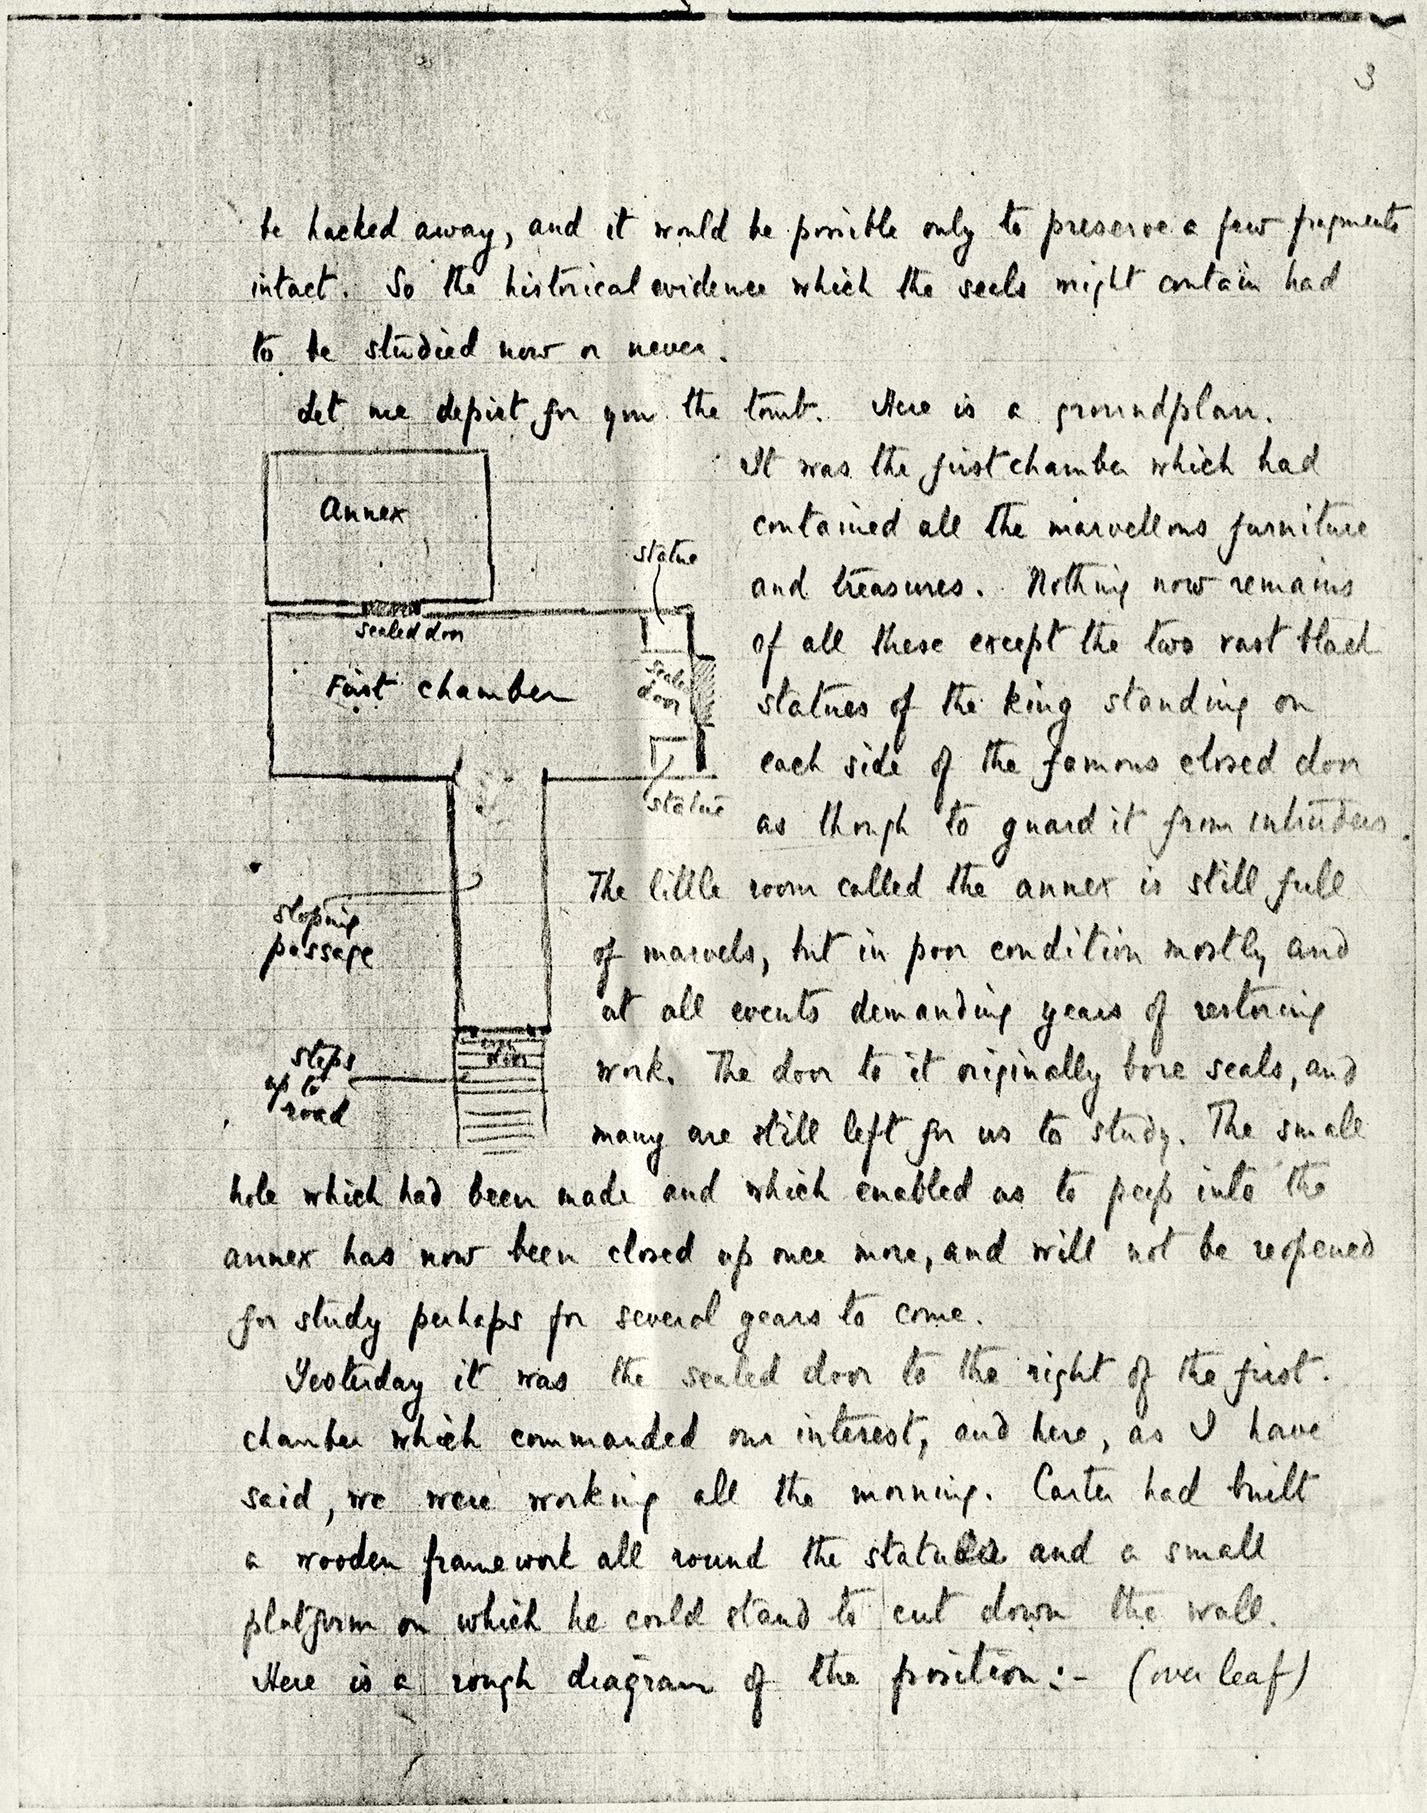 3
be hacked away, and it would be possible only to preserve a few fragments
intact. So the historical evidence which the seals might contain had
to be studied now or never.
Let me depict for you the tomb. Here is a groundplan.
Annex
sealed door
First chamber
statue
sealed
door
statue
sloping
passage
door
steps
up to
road
It was the first chamber which had
contained all the marvellous furniture
and treasures. Nothing now remains
of all these except the two vast black
statues of the king standing on
each side of the famous closed door
as though to guard it from intruders.
The little room called the annex is still full
of marvels, but in poor condition mostly and
at all events demanding years of restoring
work. The door to it originally bore seals, and
many are still left for us to study. The small
hole which had been made and which enabled us to peep into the
annex has now been closed up once more, and will not be reopened
for study perhaps for several years to come.
Yesterday it was the sealed door to the right of the first
chamber which commanded our interest, and here, as I have
said, we were working all the morning. Carter had built
a wooden framework all round the statues and a small
platform on which he could stand to cut down the wall.
Here is a rough diagram of the position:- (over leaf)